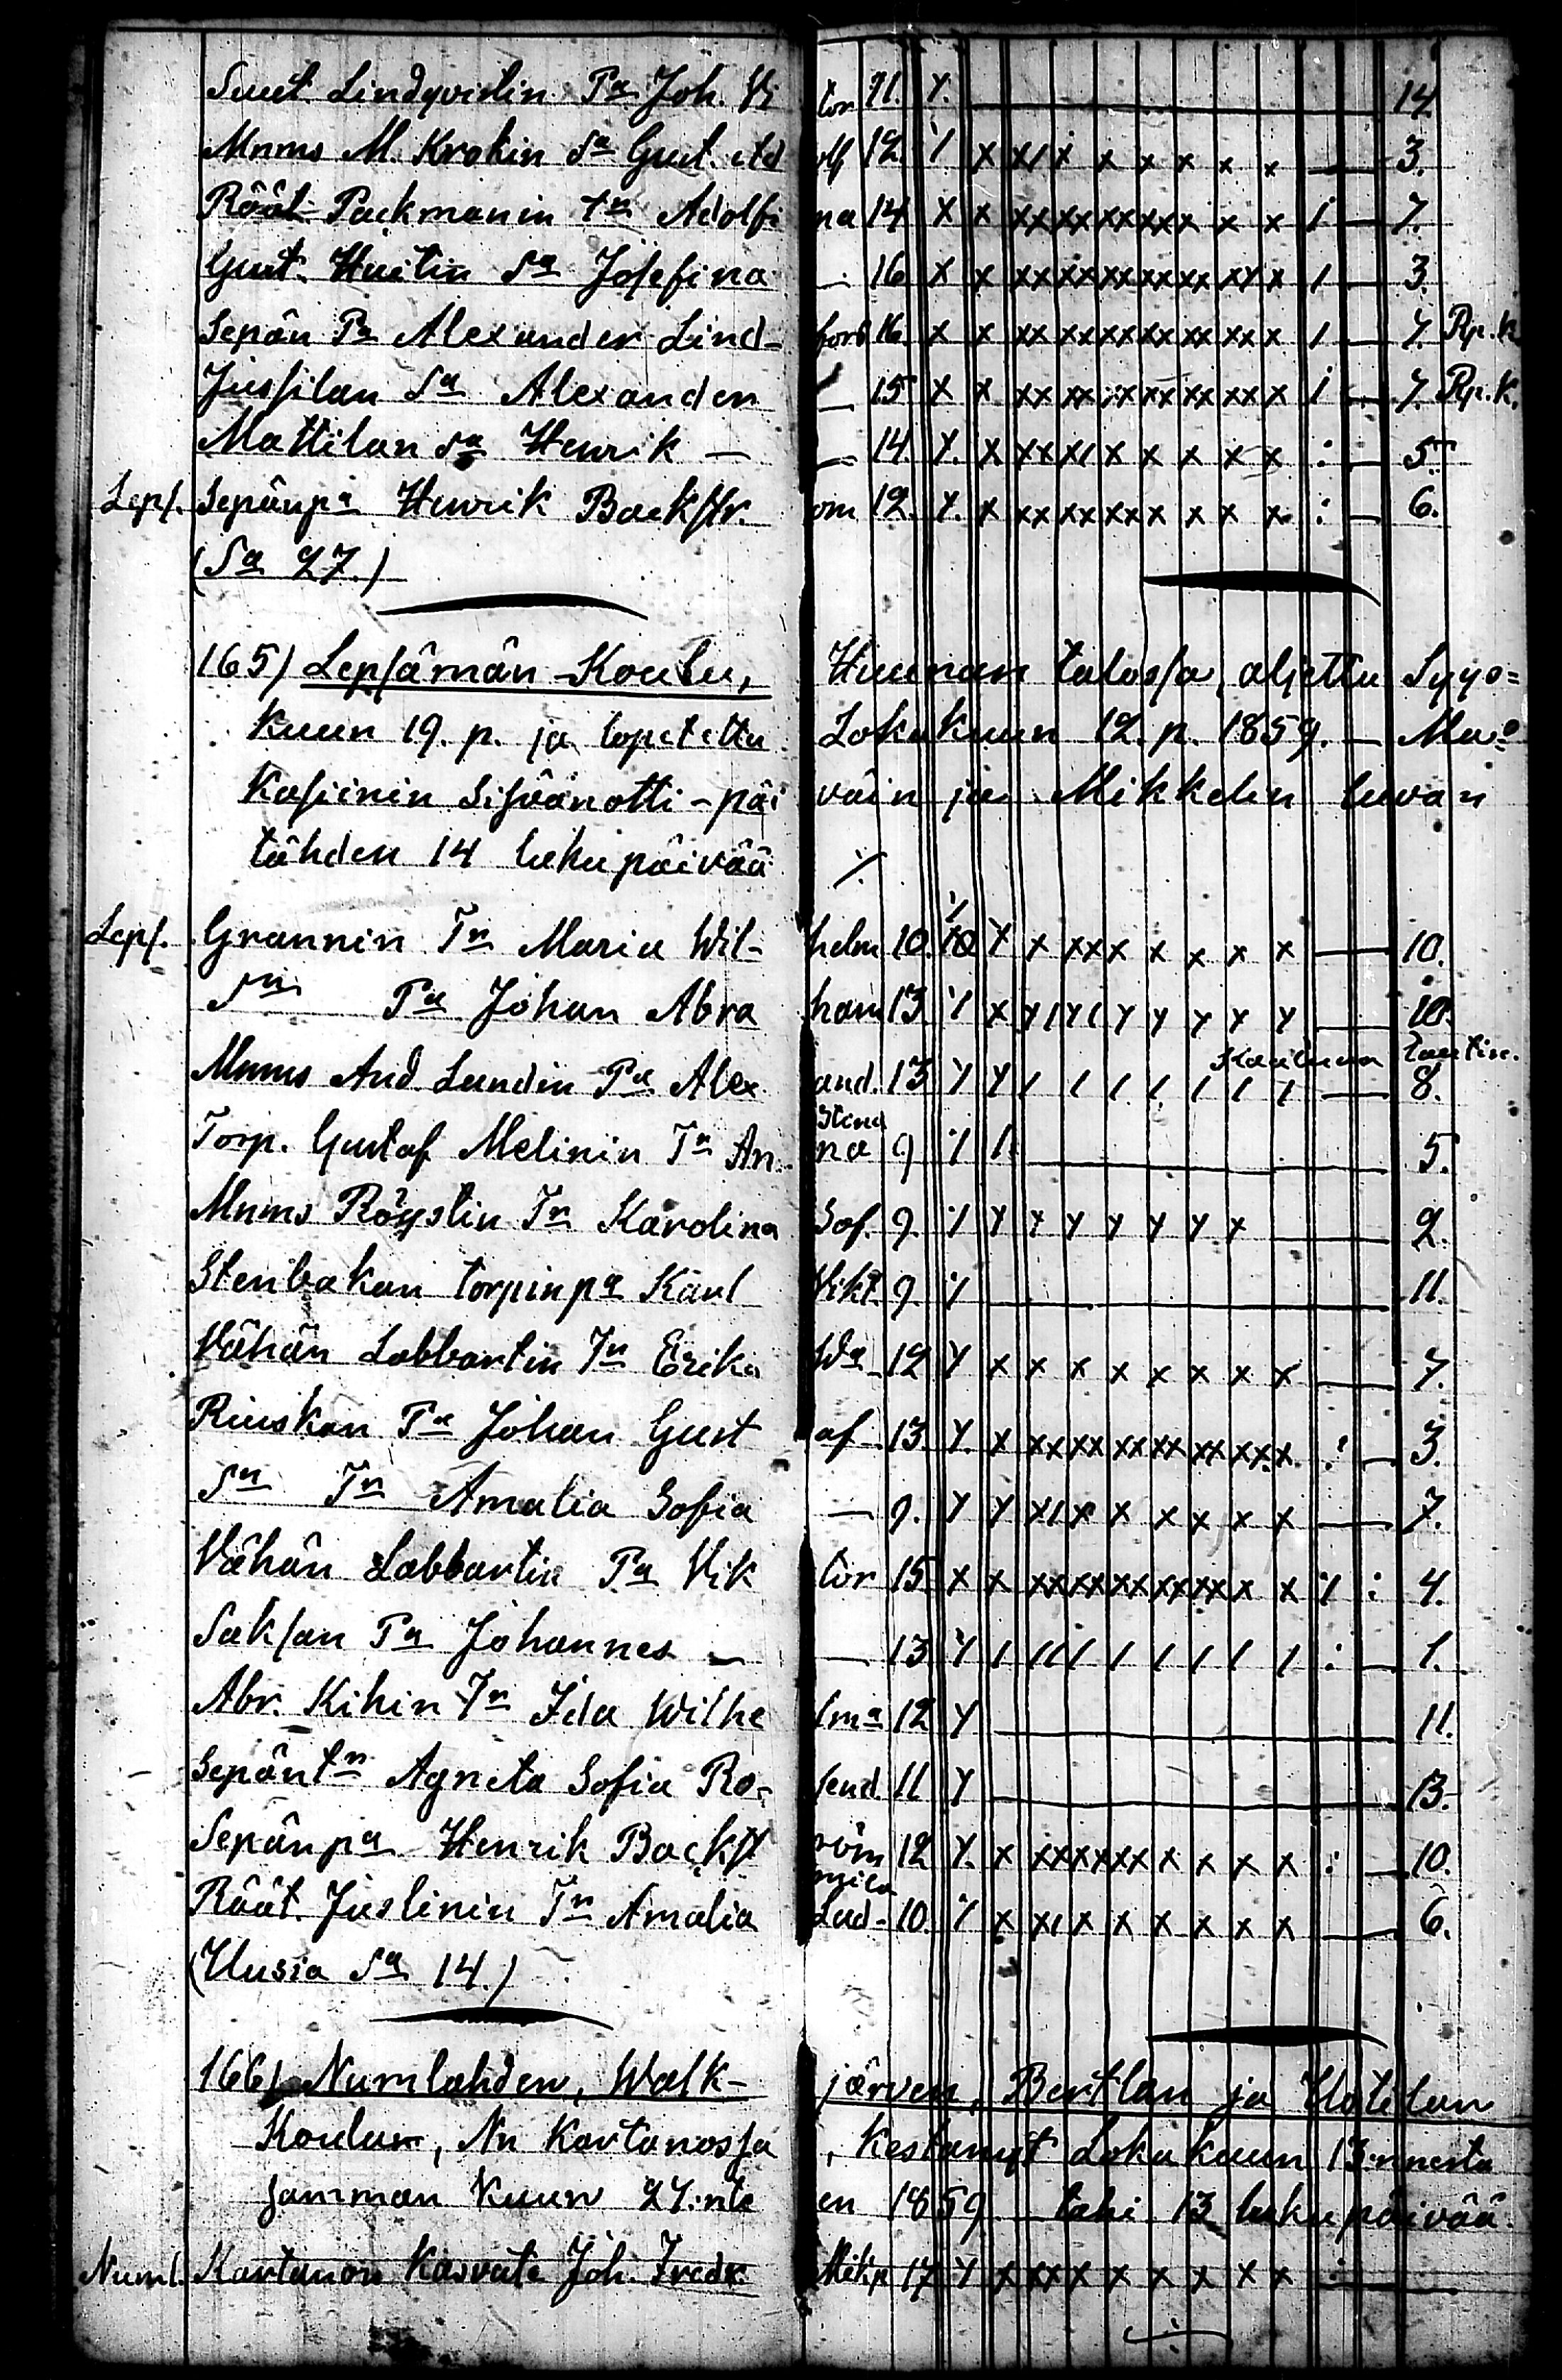 Suut. Lindqvistin Pa Joh. Vi tor 11. 14.
Mnms M. Krokin Sa Gust. Ad olf 12. / x x/x x x x x x — 3.
Räät. Packmanin tn Adolfi na 14 x x xx xx xx xx x x x / — 7.
Gust. Huitin Sa Josefina — 16 x x xx xx xx xx xx xx x / — 3.
Sepän Pa Alexander Lind- fors 16. x x xx xx xx xx xx xx x / — 7. Rp. k.
Jussilan Sa Alexander — 15 x x xx xx xx xx xx xx x / — 7. Rp. k.
Mattilan Sa Henrik — — 14. x. x xx x/ x x x x x : — 5.
Leps. Sepänpa Henrik Backstr. öm 12. x. x xx xx xx x x x x : — 6.
(Sa 27.)
165) Lepsämän Koulu, Huunan talossa, aljettu Syys=
kuun 19. p. ja lopetettu Lokakuun 12. p. 1859. — Ma=
kasiinin Sisäänotti-päi väin ja Mikkelin luvan
tähden 14 lukupäivää ./.
Leps. Grannin Tn Maria Wil- helm 10. x x xx x x x x x — 10.
Sn Pa Johan Abra ham 13 / x — 10.
Mnms And. Lundin Pa Alex and. 13 — 8.
Torp. Gustaf Melinin Tn An. Stina na 9 / /. — 5.
Mnms Röystin Tn Karolina Sof. 9. — 2.
Stenbakan torpinpa Karl Vikt. 9. / — 11.
Vähän Labbartin Tn Erika Wa 12 x x x x x x x x — 7.
Ruskan Pa Johan Gust af 13 x. x xx xx xx xx xx xx x. : — 3.
Sn Tn Amalia Sofia — 9. x x x/ x x x x x x — 7.
Vähän Labbartin Pa Vik tor 15 x x xx xx xx xx xx x x / : 4.
Saksan Pa Johannes — — 13 x / // / / / / / / : — 1.
Abr. Kihin Tn Ida Wilhe lma 12 x — 11.
Sepäntn Agneta Sofia Ro- send. 11 x — 13.
Sepänpa Henrik Backst röm 12 x. x xx xx xx x x x x : — 10.
Räät. Juslinin Tn Amalia Lud- 10. / x x/ x x x x x x — 6.
(Uusia Sa 14.)
166) Numlahden, Walk- järven, Bertlan ja Uotilan
Koulun, Nn Kartanossa, kestänyt Lokakuun 13:nnesta
samman Kuun 27:nte en 1859 tahi 13 lukupäivää.
Numl. Kartanon Kasvate Joh. Fredr. 17 x x xx x x x x x x : —